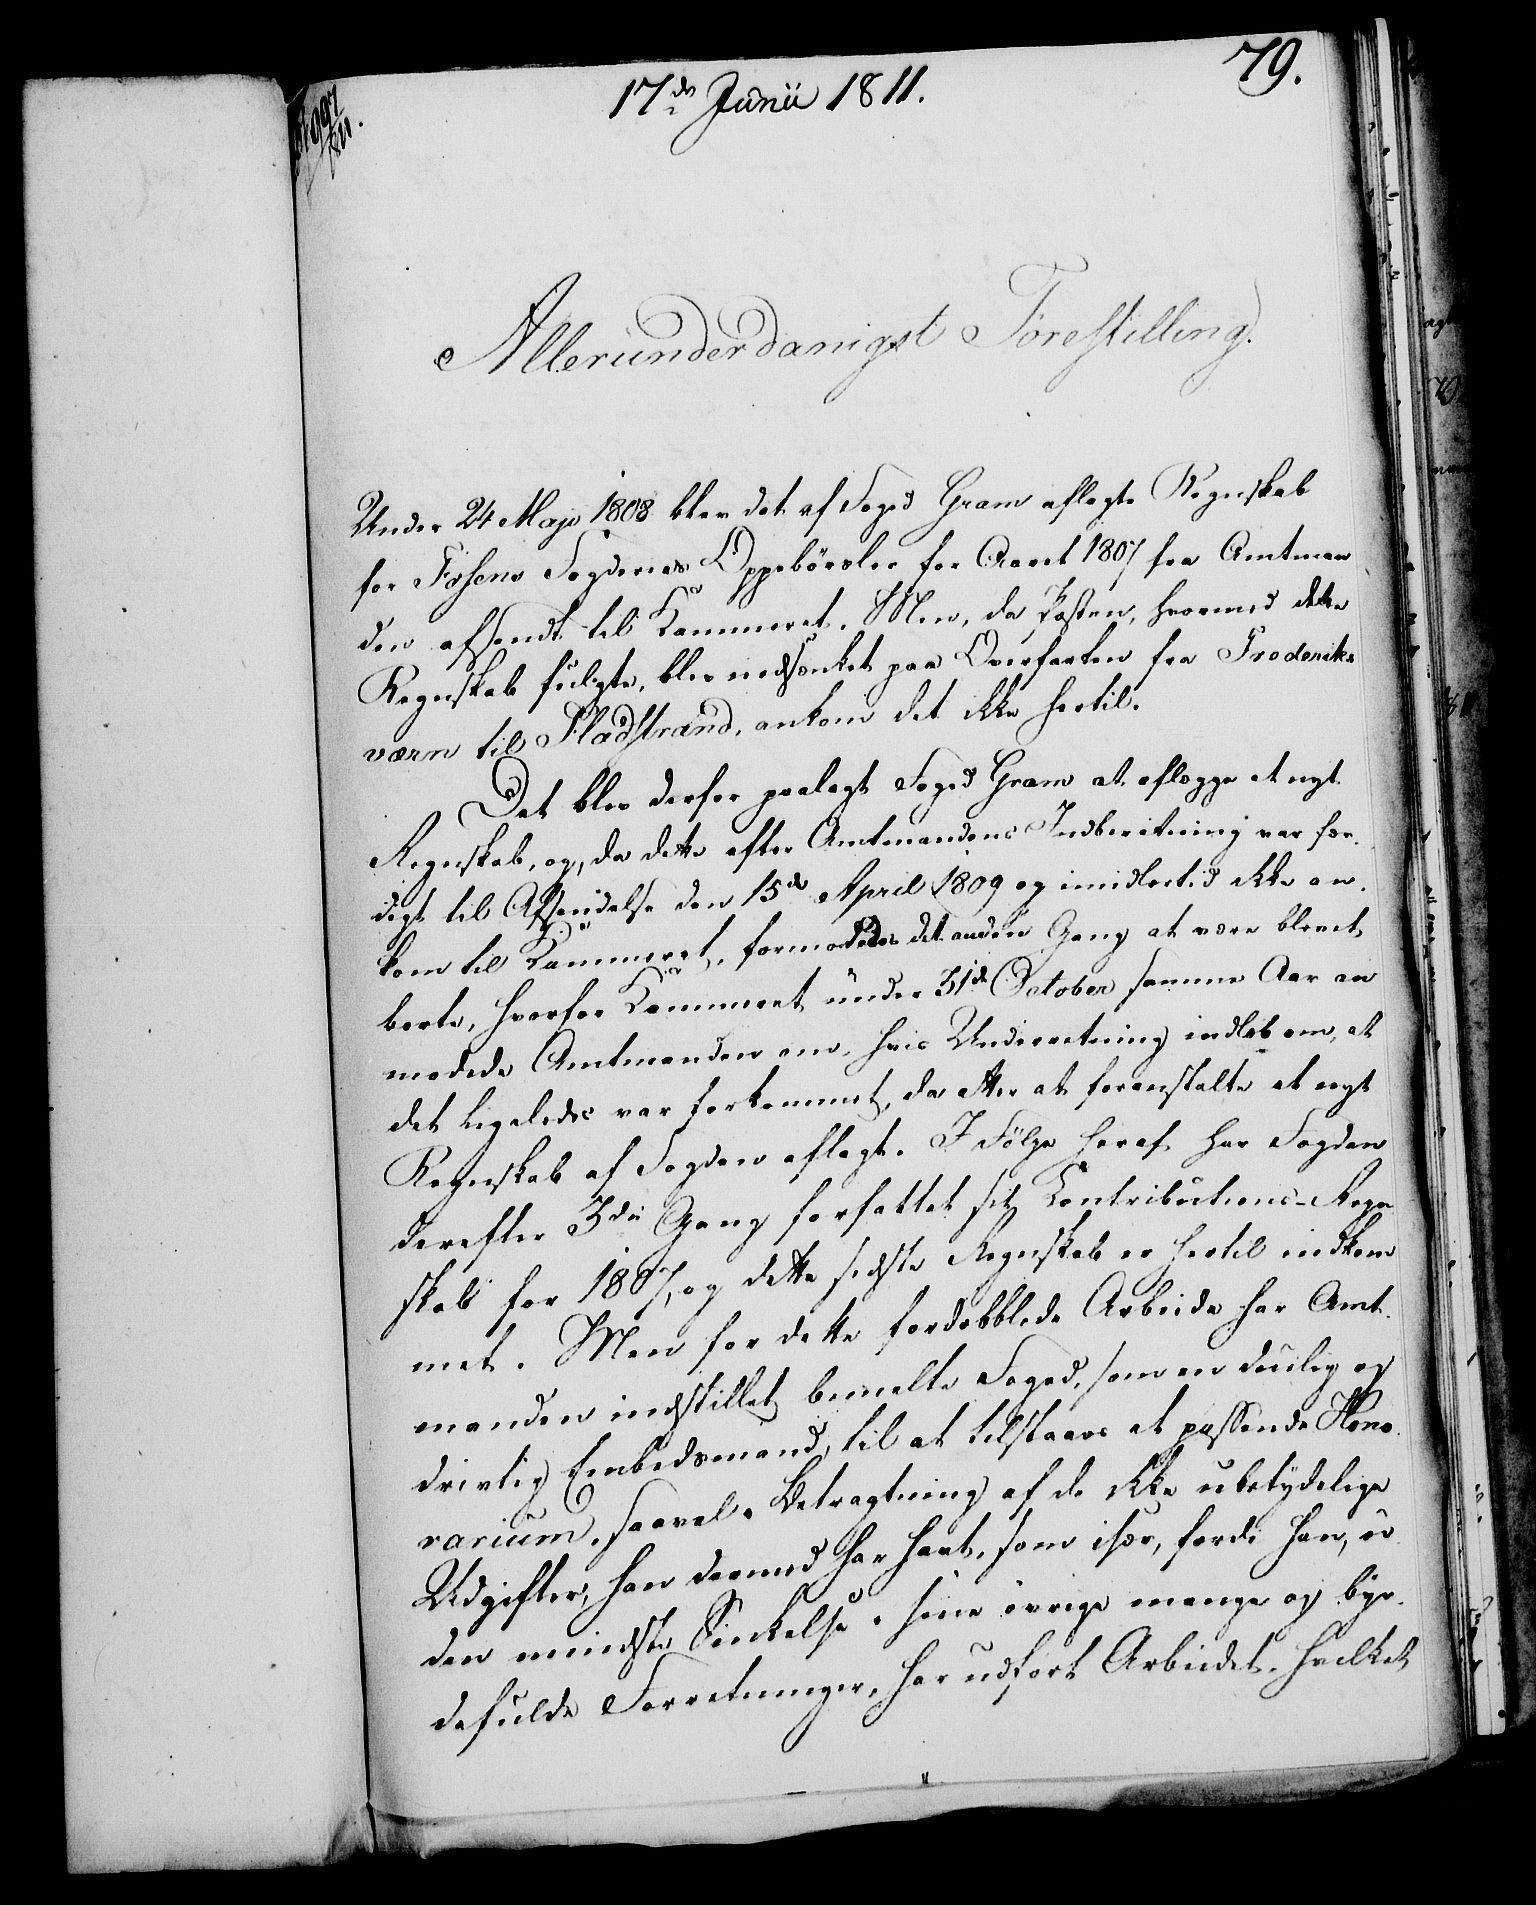 79.
17de Junii 1811.
Allerunderdanigst Forestilling.
Under 24 Maji 1808 blev det af Foged Gram aflagte Regnskab
for Fosens Fogderies Oppebörsler for Aaret 1807 fra Amtman
den afsendt til Kammeret. Men, da Posten, hvormed dette
Regnskab fulgte, blev nedsænket paa Overfarten fra Frederiks
værn til Fladstrand, ankom det ikke hertil.
Det blev derfor paalagt Foged Gram at aflægge et nyt
Regnskab, og, da dette efter Amtmandens Indberetning var fær-
digt til Afsendelse den 15de April 1809 og imidlertid ikke an-
kom til Kammeret, formodedes det anden Gang at være blevet
borte, hvorfor Kammeret under 31de October samme Aar an
modede Amtmanden om, hvis Underretning indløb om, at
det ligeledes var forkommet, da atter at foranstalte et nyt
Regnskab af Fogden aflagt. I Fölge heraf har Fogden
derefter 3die Gang forfattet sit Contributions-Regn
skab for 1807, og dette sidste Regnskab er hertil indkom
met. Men for dette fordobblede Arbeide har Amt-
manden indstillet bemelte Foged, som en duelig og
drivtig Embedsmand, til at tilstaaes et passende Hono-
rarium, saavel i Betragtning af de ikke ubetydelige
Udgifter, han dermed har havt, som især, fordi han, u
den mindste Sinkelse i sine övrige mange og byr-
defulde Forretninger, har udført Arbeidet, hvilket